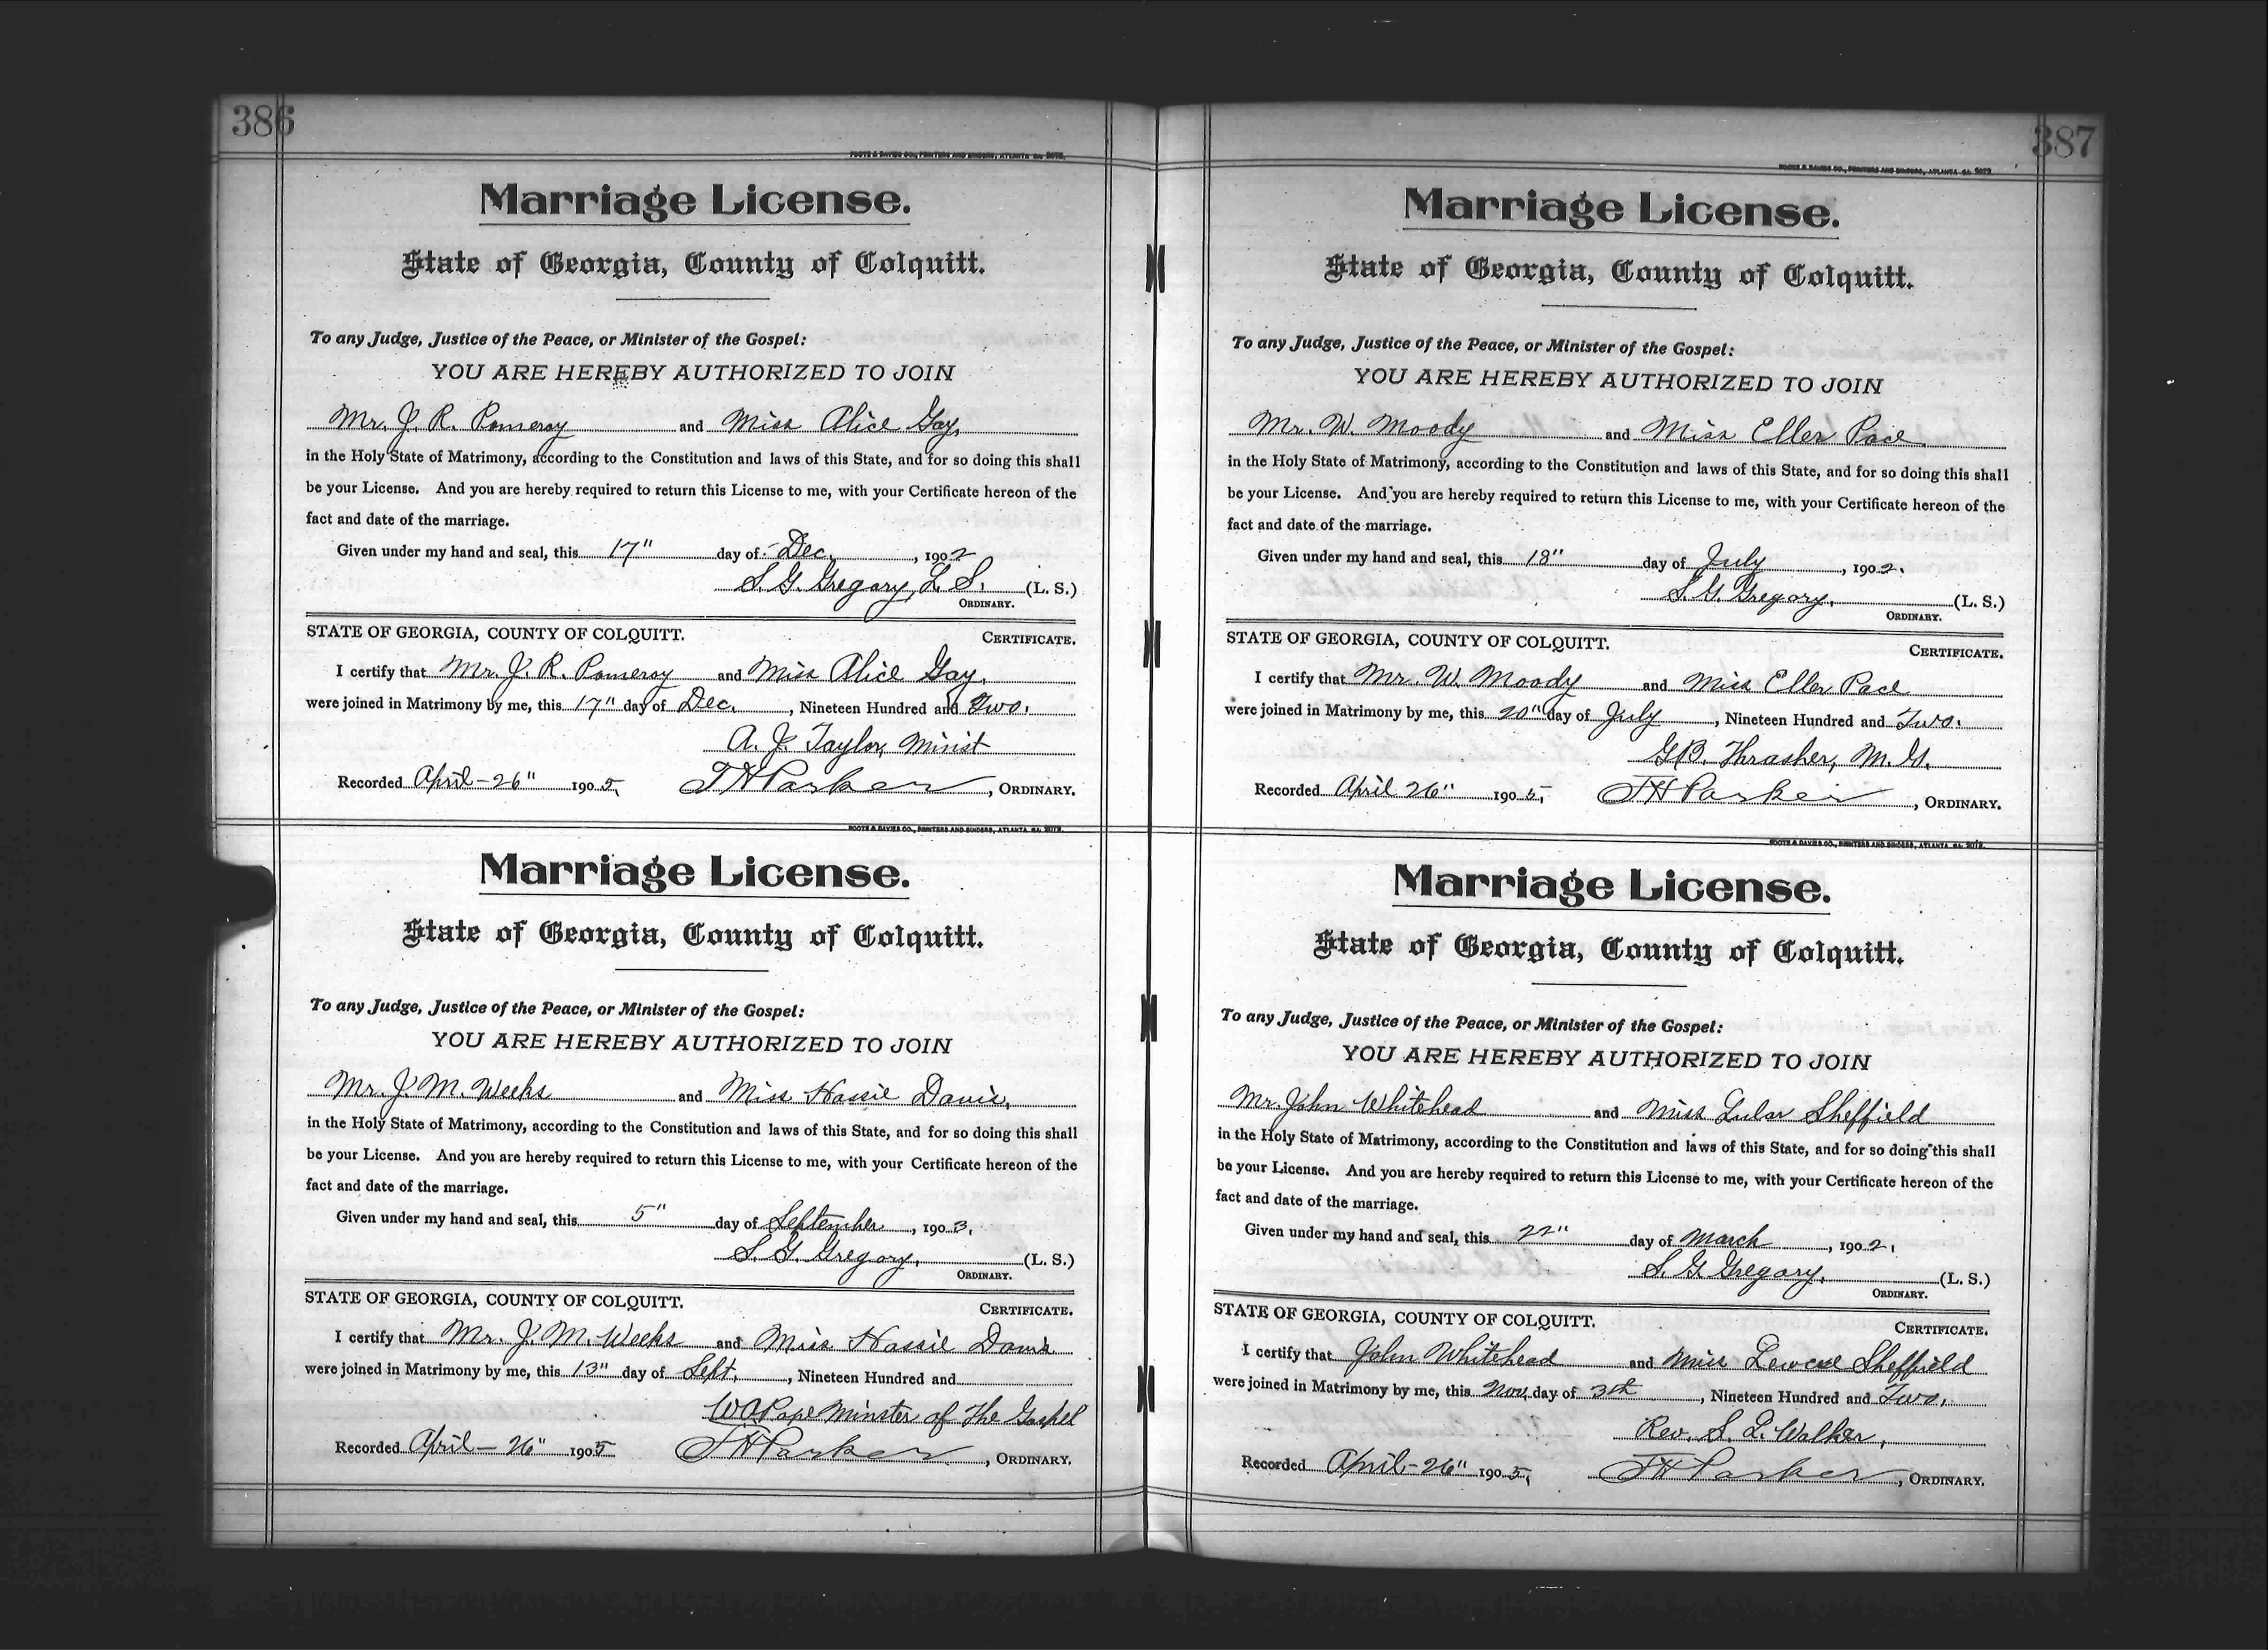 386
FOOTE & DAVIES CO., PRINTERS AND BINDERS, ATLANTA GA.
Marriage License.
State of Georgia, County of Colquitt.
To any Judge, Justice of the Peace, or Minister of the Gospel:
YOU ARE HEREBY AUTHORIZED TO JOIN
Mr. J. R. Pomeroy and Miss Alice Gay,
in the Holy State of Matrimony, according to the Constitution and laws of this State, and for so doing this shall
be your License. And you are hereby required to return this License to me, with your Certificate hereon of the
fact and date of the marriage.
Given under my hand and seal, this 17" day of Dec. , 1902
S. G. Gregory, L. S. (L. S.)
ORDINARY.
STATE OF GEORGIA, COUNTY OF COLQUITT. CERTIFICATE.
I certify that Mr. J. R. Pomeroy and Miss Alice Gay.
were joined in Matrimony by me, this 17" day of Dec. , Nineteen Hundred and Two.
A. J. Taylor, Minist
Recorded April-26" 1905, T H Parker , ORDINARY.
FOOTE & DAVIES CO., PRINTERS AND BINDERS, ATLANTA GA.
Marriage License.
State of Georgia, County of Colquitt.
To any Judge, Justice of the Peace, or Minister of the Gospel:
YOU ARE HEREBY AUTHORIZED TO JOIN
Mr. J. M. Weeks and Miss Hassie Davis,
in the Holy State of Matrimony, according to the Constitution and laws of this State, and for so doing this shall
be your License. And you are hereby required to return this License to me, with your Certificate hereon of the
fact and date of the marriage.
Given under my hand and seal, this 5" day of September , 1903,
S. G. Gregory, (L. S.)
ORDINARY.
STATE OF GEORGIA, COUNTY OF COLQUITT. CERTIFICATE.
I certify that Mr. J. M. Weeks and Miss Hassie Davis
were joined in Matrimony by me, this 13" day of Sept. , Nineteen Hundred and
W O Pope Minster of The Gospel
Recorded April-26" 1905 T H Parker , ORDINARY.
387
FOOTE & DAVIES CO., PRINTERS AND BINDERS, ATLANTA GA.
Marriage License.
State of Georgia, County of Colquitt.
To any Judge, Justice of the Peace, or Minister of the Gospel:
YOU ARE HEREBY AUTHORIZED TO JOIN
Mr. W. Moody and Miss Eller Pace
in the Holy State of Matrimony, according to the Constitution and laws of this State, and for so doing this shall
be your License. And you are hereby required to return this License to me, with your Certificate hereon of the
fact and date of the marriage.
Given under my hand and seal, this 18" day of July , 1902.
S. G. Gregory, (L. S.)
ORDINARY.
STATE OF GEORGIA, COUNTY OF COLQUITT. CERTIFICATE.
I certify that Mr. W. Moody and Miss Eller Pace
were joined in Matrimony by me, this 20" day of July , Nineteen Hundred and Two.
G B. Thrasher, M. G.
Recorded April 26" 1905, T H Parker , ORDINARY.
FOOTE & DAVIES CO., PRINTERS AND BINDERS, ATLANTA GA.
Marriage License.
State of Georgia, County of Colquitt.
To any Judge, Justice of the Peace, or Minister of the Gospel:
YOU ARE HEREBY AUTHORIZED TO JOIN
Mr. John Whitehead and Miss Lular Sheffield
in the Holy State of Matrimony, according to the Constitution and laws of this State, and for so doing this shall
be your License. And you are hereby required to return this License to me, with your Certificate hereon of the
fact and date of the marriage.
Given under my hand and seal, this 22" day of March , 1902,
S. G Gregory, (L. S.)
ORDINARY.
STATE OF GEORGIA, COUNTY OF COLQUITT. CERTIFICATE.
I certify that John Whitehead and Miss Sheffield
were joined in Matrimony by me, this Nov day of 3th , Nineteen Hundred and Two,
Rev. S. L. Walker,
Recorded April-26" 1905, T H Parker , ORDINARY.